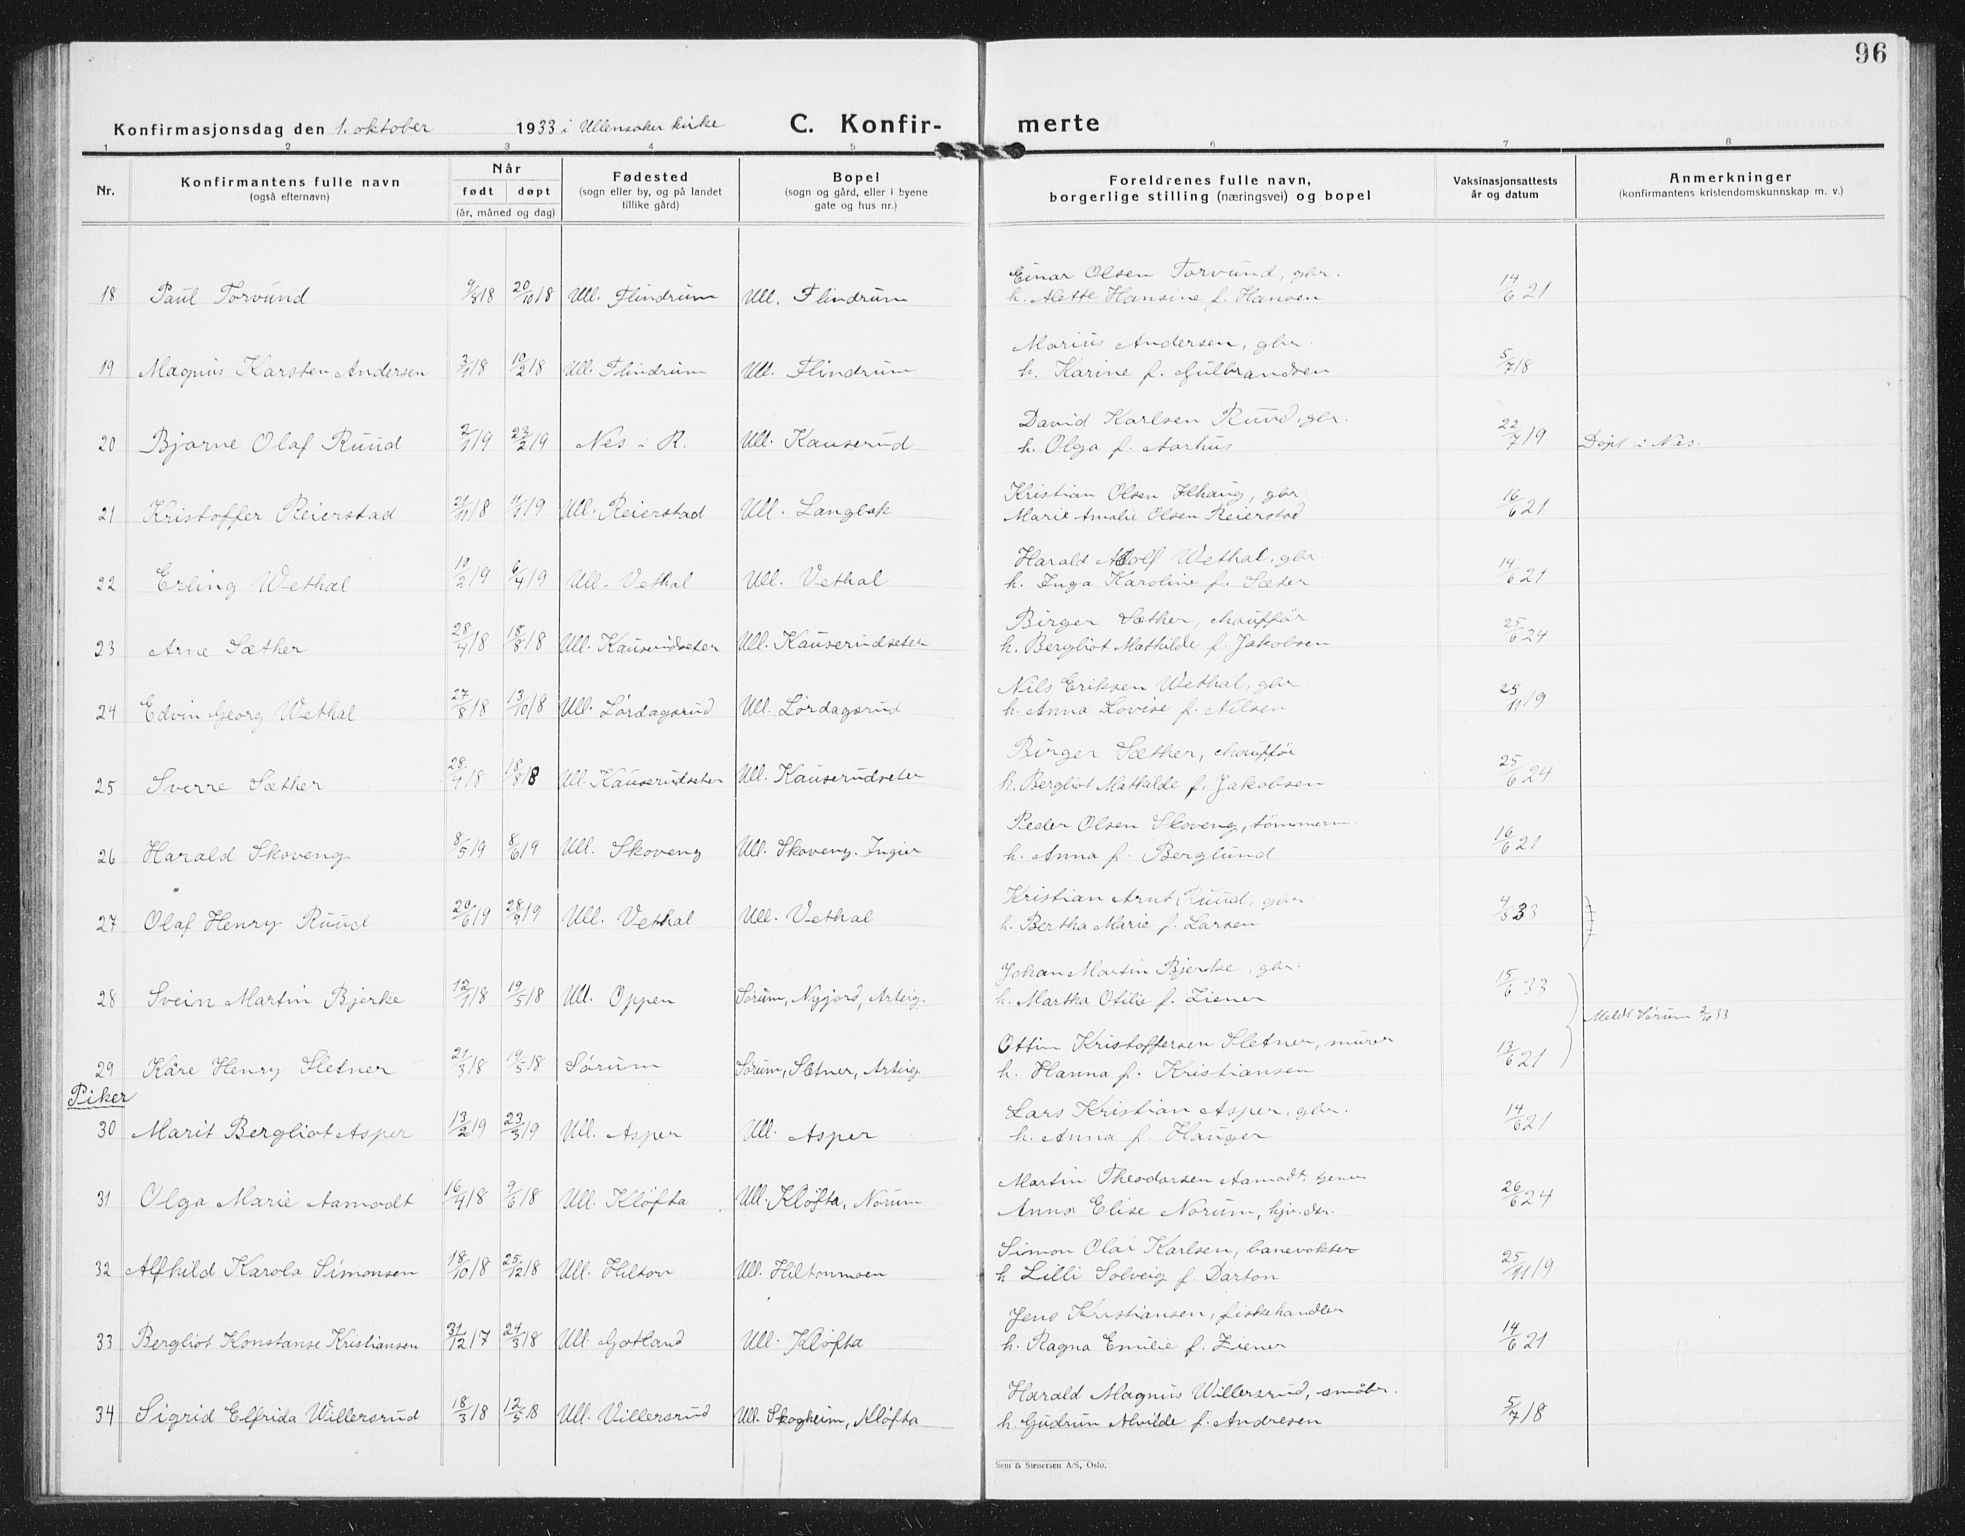 96
Konfirmasjonsdag den 1. oktober 1933 i Ullensaker kirke C. Konfir- merte
1 2 3 4 5 6 7 8
Nr. Konfirmantens fulle navn (også efternavn) Når født døpt (år, måned og dag) Fødested (sogn eller by, og på landet tillike gård) Bopel (sogn og gård, eller i byene gate og hus nr.) Foreldrenes fulle navn, borgerlige stilling (næringsvei) og bopel Vaksinasjonsattests år og datum Anmerkninger (konfirmantens kristendomskunnskap m. v.)
Einar Olsen Torvund, gbr.
18 Paul Torvund 9/8 18 20/10 18 Ull. Flindrum Ull. Flindrum h. Alette Hansine f. Hansen 14/6 21
Marius Andersen, gbr.
19 Magnus Karsten Andersen 3/1 18 10/2 18 Ull. Flindrum Ull. Flindrum h. Karine f. Gulbrandsen 5/7 18
David Karlsen Ruud, gbr.
20 Bjarne Olaf Ruud 2/1 19 23/2 19 Nes i R. Ull. Kauserud h. Olga f. Aarhus 22/7 19 Døpt i Nes.
Kristian Olsen Ilhaug, gbr.
21 Kristoffer Reierstad 21/11 18 11/1 19 Ull. Reierstad Ull. Langbak Marie Amalie Olsen Reierstad 16/6 21
Harald Adolf Wethal, gbr.
22 Erling Wethal 10/2 19 6/4 19 Ull. Vethal Ull. Vethal h. Inga Karoline f. Sæter 14/6 21
Birger Sæther, chauffør
23 Arne Sæther 28/4 18 18/8 18 Ull. Kauserudseter Ull. Kauserudseter h. Bergliot Mathilde f. Jakobsen 25/6 24
Nils Eriksen Wethal, gbr.
24 Edvin Georg Wethal 27/8 18 13/10 18 Ull. Lørdagsrud Ull. Lørdagsrud h. Anna Lovise f. Nilsen 25/11 19
Birger Sæther, chauffør
25 Sverre Sæther 28/4 18 18/8 18 Ull. Kauserudseter Ull. Kauserudseter h. Bergliot Mathilde f. Jakobsen 25/6 24
Peder Olsen Skoveng, tømmerm.
26 Harald Skoveng 8/5 19 8/6 19 Ull. Skoveng Ull. Skoveng. Ingier h. Anna f. Berglund 16/6 21
Kristian Arnt Ruud, gbr.
27 Olaf Henry Ruud 20/6 19 28/9 19 Ull. Vethal Ull. Vethal h. Bertha Marie f. Larsen 4/6 33
Johan Martin Bjerke, gbr.
28 Svein Martin Bjerke 12/1 18 19/5 18 Ull. Oppen Sørum, Nyjord, Arteig. h. Martha Otilie f. Ziener 15/6 33
Meldt Sørum 2/10 33
Ottin Kristoffersen Sletner, murer
29 Kåre Henry Sletner 21/3 18 19/5 18 Sørum Sørum, Sletner, Arteig h. Hanna f. Kristiansen 13/6 21
Piker
Lars Kristian Asper, gbr.
30 Marit Bergliot Asper 13/2 19 23/3 19 Ull. Asper Ull. Asper h. Anna f. Hauger 14/6 21
Martin Theodorsen Aamodt,
31 Olga Marie Aamodt 16/4 18 9/6 18 Ull. Kløfta Ull. Kløfta, Norum Anna Elise Norum, hjv.dr. 26/6 24
Simon Olai Karlsen, banevokter
32 Alfhild Karola Simonsen 18/10 18 25/12 18 Ull. Hilton Ull. Hiltonmoen h. Lilli Solveig f. Darton 25/11 19
Jens Kristiansen, fiskehandler
33 Bergliot Konstanse Kristiansen 31/12 17 24/3 18 Ull. Gotland Ull. Kløfta h. Ragna Emilie f. Ziener 14/6 21
Harald Magnus Willersrud, småbr.
34 Sigrid Elfrida Willersrud 18/3 18 12/5 18 Ull. Villersrud Ull. Skogheim, Kløfta h. Gudrun Alvilde f. Andresen 5/7 18
Sem & Stenersen A/S, Oslo.